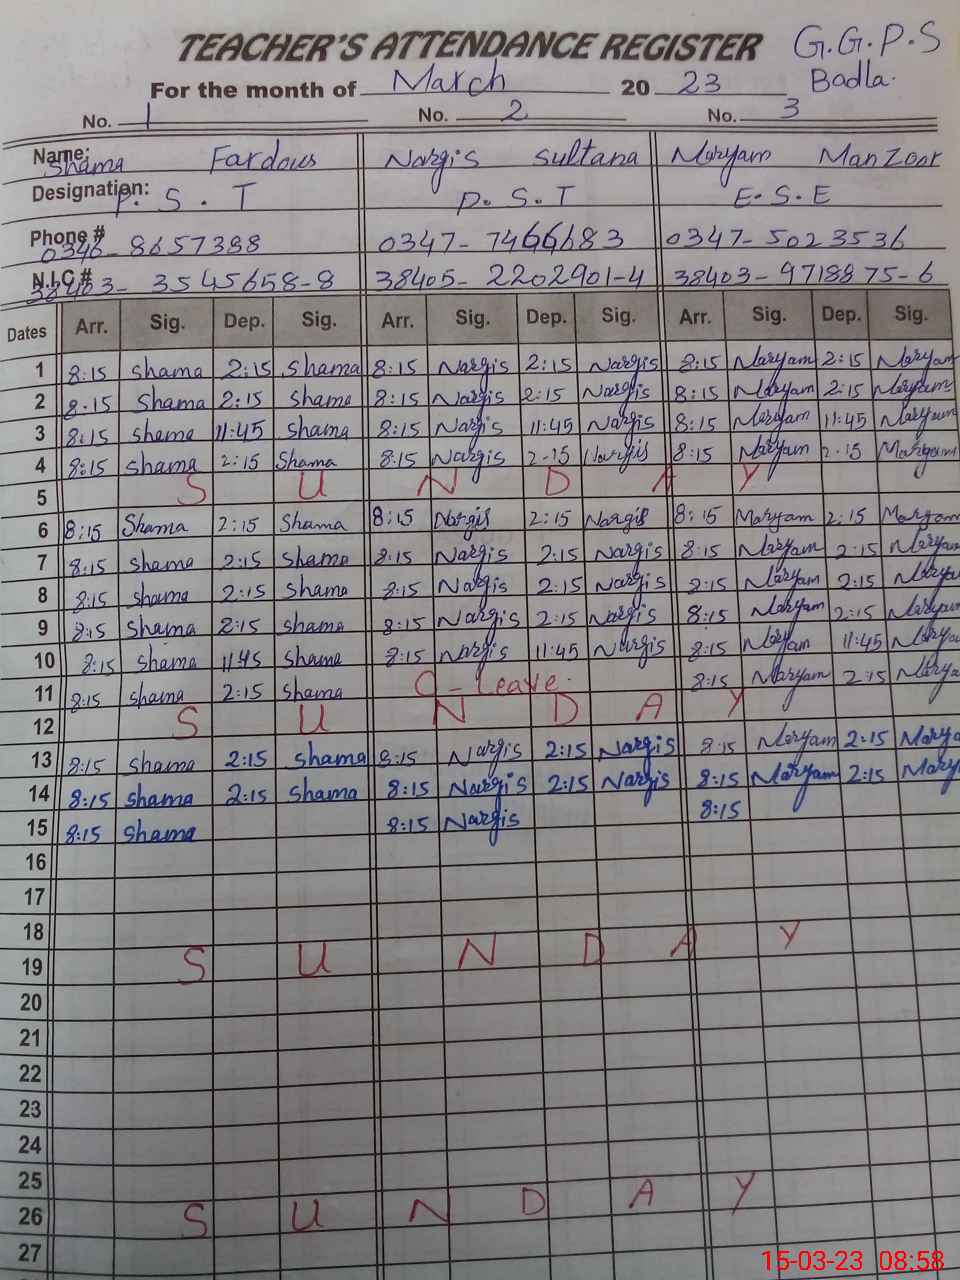 TEACHER'S ATTENDANCE REGISTER G.G.P.S
For the month of March 20 23 Badla.
No. 1 No. 2 No. 3
Name: Shama Fardous Nargis Sultana Maryam Manzoor
Designation: P.S.T P.S.T E.S.E
Phone # 0346-8657388 0347-7466683 0347-5023536
N.I.C # 38403-3545658-8 38405-2202901-4 38403-9718875-6
Dates Arr. Sig. Dep. Sig. Arr. Sig. Dep. Sig. Arr. Sig. Dep. Sig.
1 8:15 Shama 2:15 Shama 8:15 Nargis 2:15 Nargis 8:15 Maryam 2:15 Maryam
2 8:15 Shama 2:15 Shama 8:15 Nargis 2:15 Nargis 8:15 Maryam 2:15 Maryam
3 8:15 Shama 11:45 Shama 8:15 Nargis 11:45 Nargis 8:15 Maryam 11:45 Maryam
4 8:15 Shama 2:15 Shama 8:15 Nargis 2-15 Nargis 8:15 Maryam 2-15 Maryam
5 S U N D A Y
6 8:15 Shama 2:15 Shama 8:15 Nargis 2:15 Nargis 8:15 Maryam 2:15 Maryam
7 8:15 Shama 2:15 Shama 8:15 Nargis 2:15 Nargis 8:15 Maryam 2:15 Maryam
8 8:15 Shama 2:15 Shama 8:15 Nargis 2:15 Nargis 8:15 Maryam 2:15 Maryam
9 8:15 Shama 2:15 Shama 8:15 Nargis 2:15 Nargis 8:15 Maryam 2:15 Maryam
10 8:15 Shama 11:45 Shama 8:15 Nargis 11:45 Nargis 8:15 Maryam 11:45 Marya
11 8:15 Shama 2:15 Shama C-Leave. 8:15 Maryam 2:15 Marya
12 S U N D A Y
13 8:15 Shama 2:15 Shama 8:15 Nargis 2:15 Nargis 8:15 Maryam 2:15 Marya
14 8:15 Shama 2:15 Shama 8:15 Nargis 2:15 Nargis 8:15 Maryam 2:15 Mary
15 8:15 Shama 8:15 Nargis 8:15
16
17
18
19 S U N D A Y
20
21
22
23
24
25
26 S U N D A Y
27
15-03-23 08:58